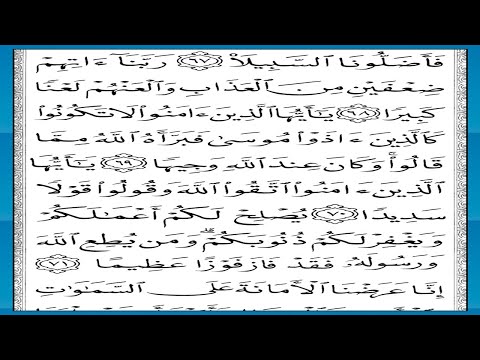 فَأَضَلُّونَا ٱلسَّبِيلَا۠ ٦٧ رَبَّنَآ ءَاتِهِمْ
ضِعْفَيْنِ مِنَ ٱلْعَذَابِ وَٱلْعَنْهُمْ لَعْنًا
كَبِيرًا ٦٨ يَـٰٓأَيُّهَا ٱلَّذِينَ ءَامَنُوا۟ لَا تَكُونُوا۟
كَٱلَّذِينَ ءَاذَوْا۟ مُوسَىٰ فَبَرَّأَهُ ٱللَّهُ مِمَّا
قَالُوا۟ وَكَانَ عِندَ ٱللَّهِ وَجِيهًا ٦٩ يَـٰٓأَيُّهَا
ٱلَّذِينَ ءَامَنُوا۟ ٱتَّقُوا۟ ٱللَّهَ وَقُولُوا۟ قَوْلًا
سَدِيدًا ٧٠ يُصْلِحْ لَكُمْ أَعْمَـٰلَكُمْ
وَيَغْفِرْ لَكُمْ ذُنُوبَكُمْ ۗ وَمَن يُطِعِ ٱللَّهَ
وَرَسُولَهُۥ فَقَدْ فَازَ فَوْزًا عَظِيمًا ٧١
إِنَّا عَرَضْنَا ٱلْأَمَانَةَ عَلَى ٱلسَّمَـٰوَٰتِ